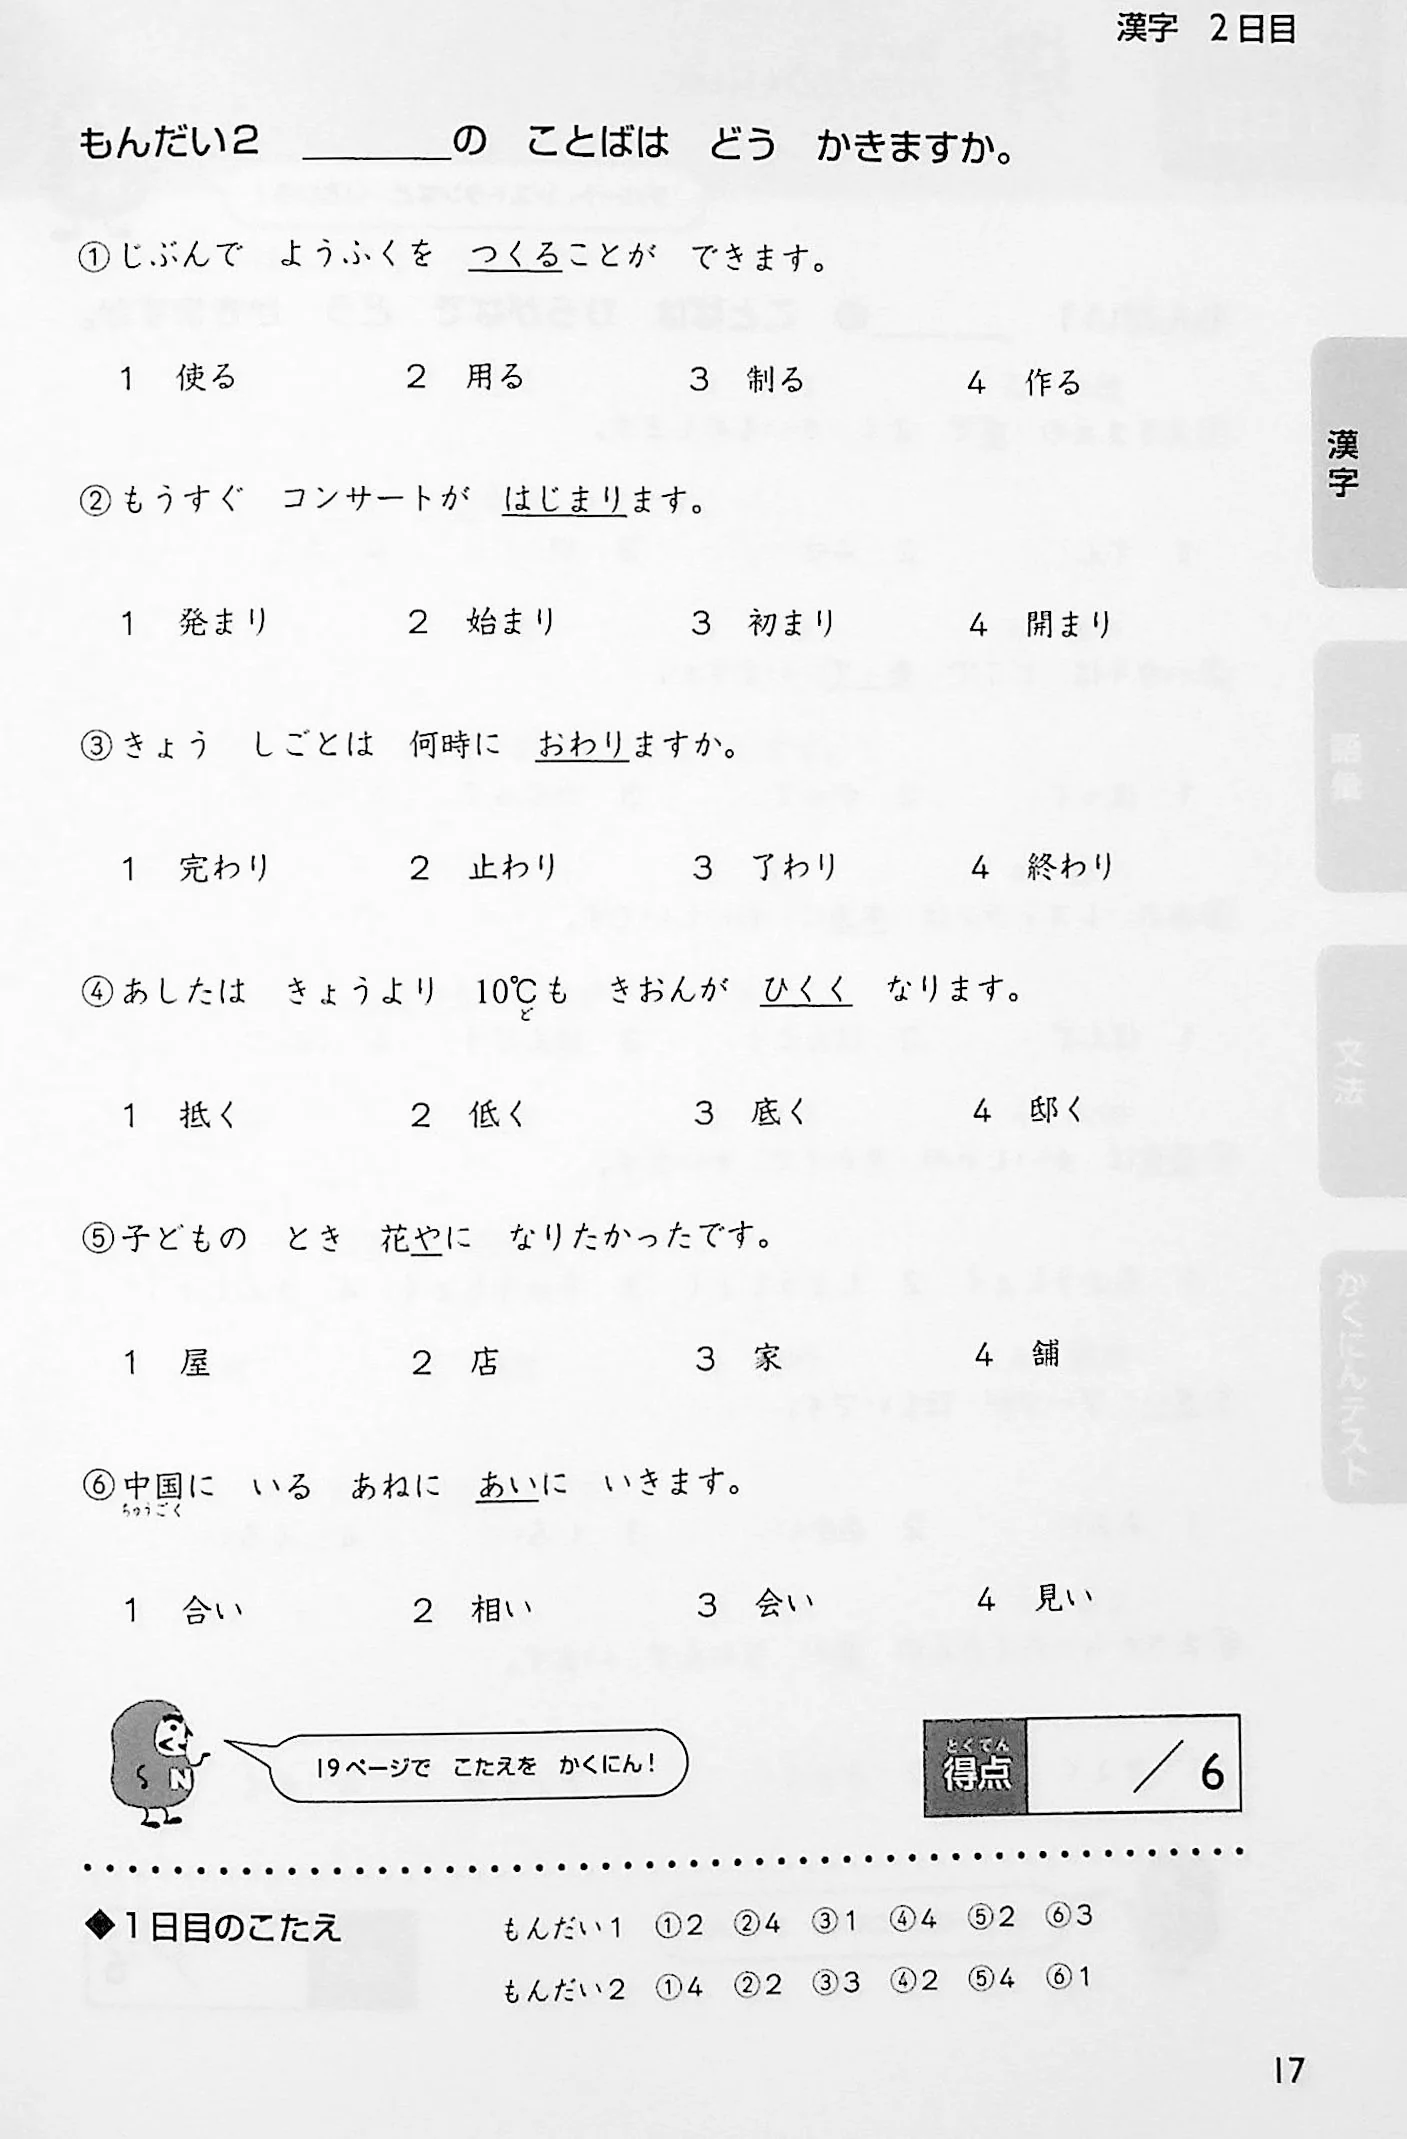 漢字 2日目
もんだい2 ______の ことばは どう かきますか。
①じぶんで ようふくを つくることが できます。
1 使る 2 用る 3 制る 4 作る
②もうすぐ コンサートが はじまります。
1 発まり 2 始まり 3 初まり 4 開まり
③きょう しごとは 何時に おわりますか。
1 完わり 2 止わり 3 了わり 4 終わり
④あしたは きょうより 10℃も きおんが ひくく なります。
ど
1 抵く 2 低く 3 底く 4 邸く
⑤子どもの とき 花やに なりたかったです。
1 屋 2 店 3 家 4 舗
⑥中国に いる あねに あいに いきます。
ちゅうごく
1 合い 2 相い 3 会い 4 見い
N
19ページで こたえを かくにん!
とくてん
得点 ／6
◆1日目のこたえ
もんだい1 ①2 ②4 ③1 ④4 ⑤2 ⑥3
もんだい2 ①4 ②2 ③3 ④2 ⑤4 ⑥1
17
漢字
語彙
文法
かくにんテスト